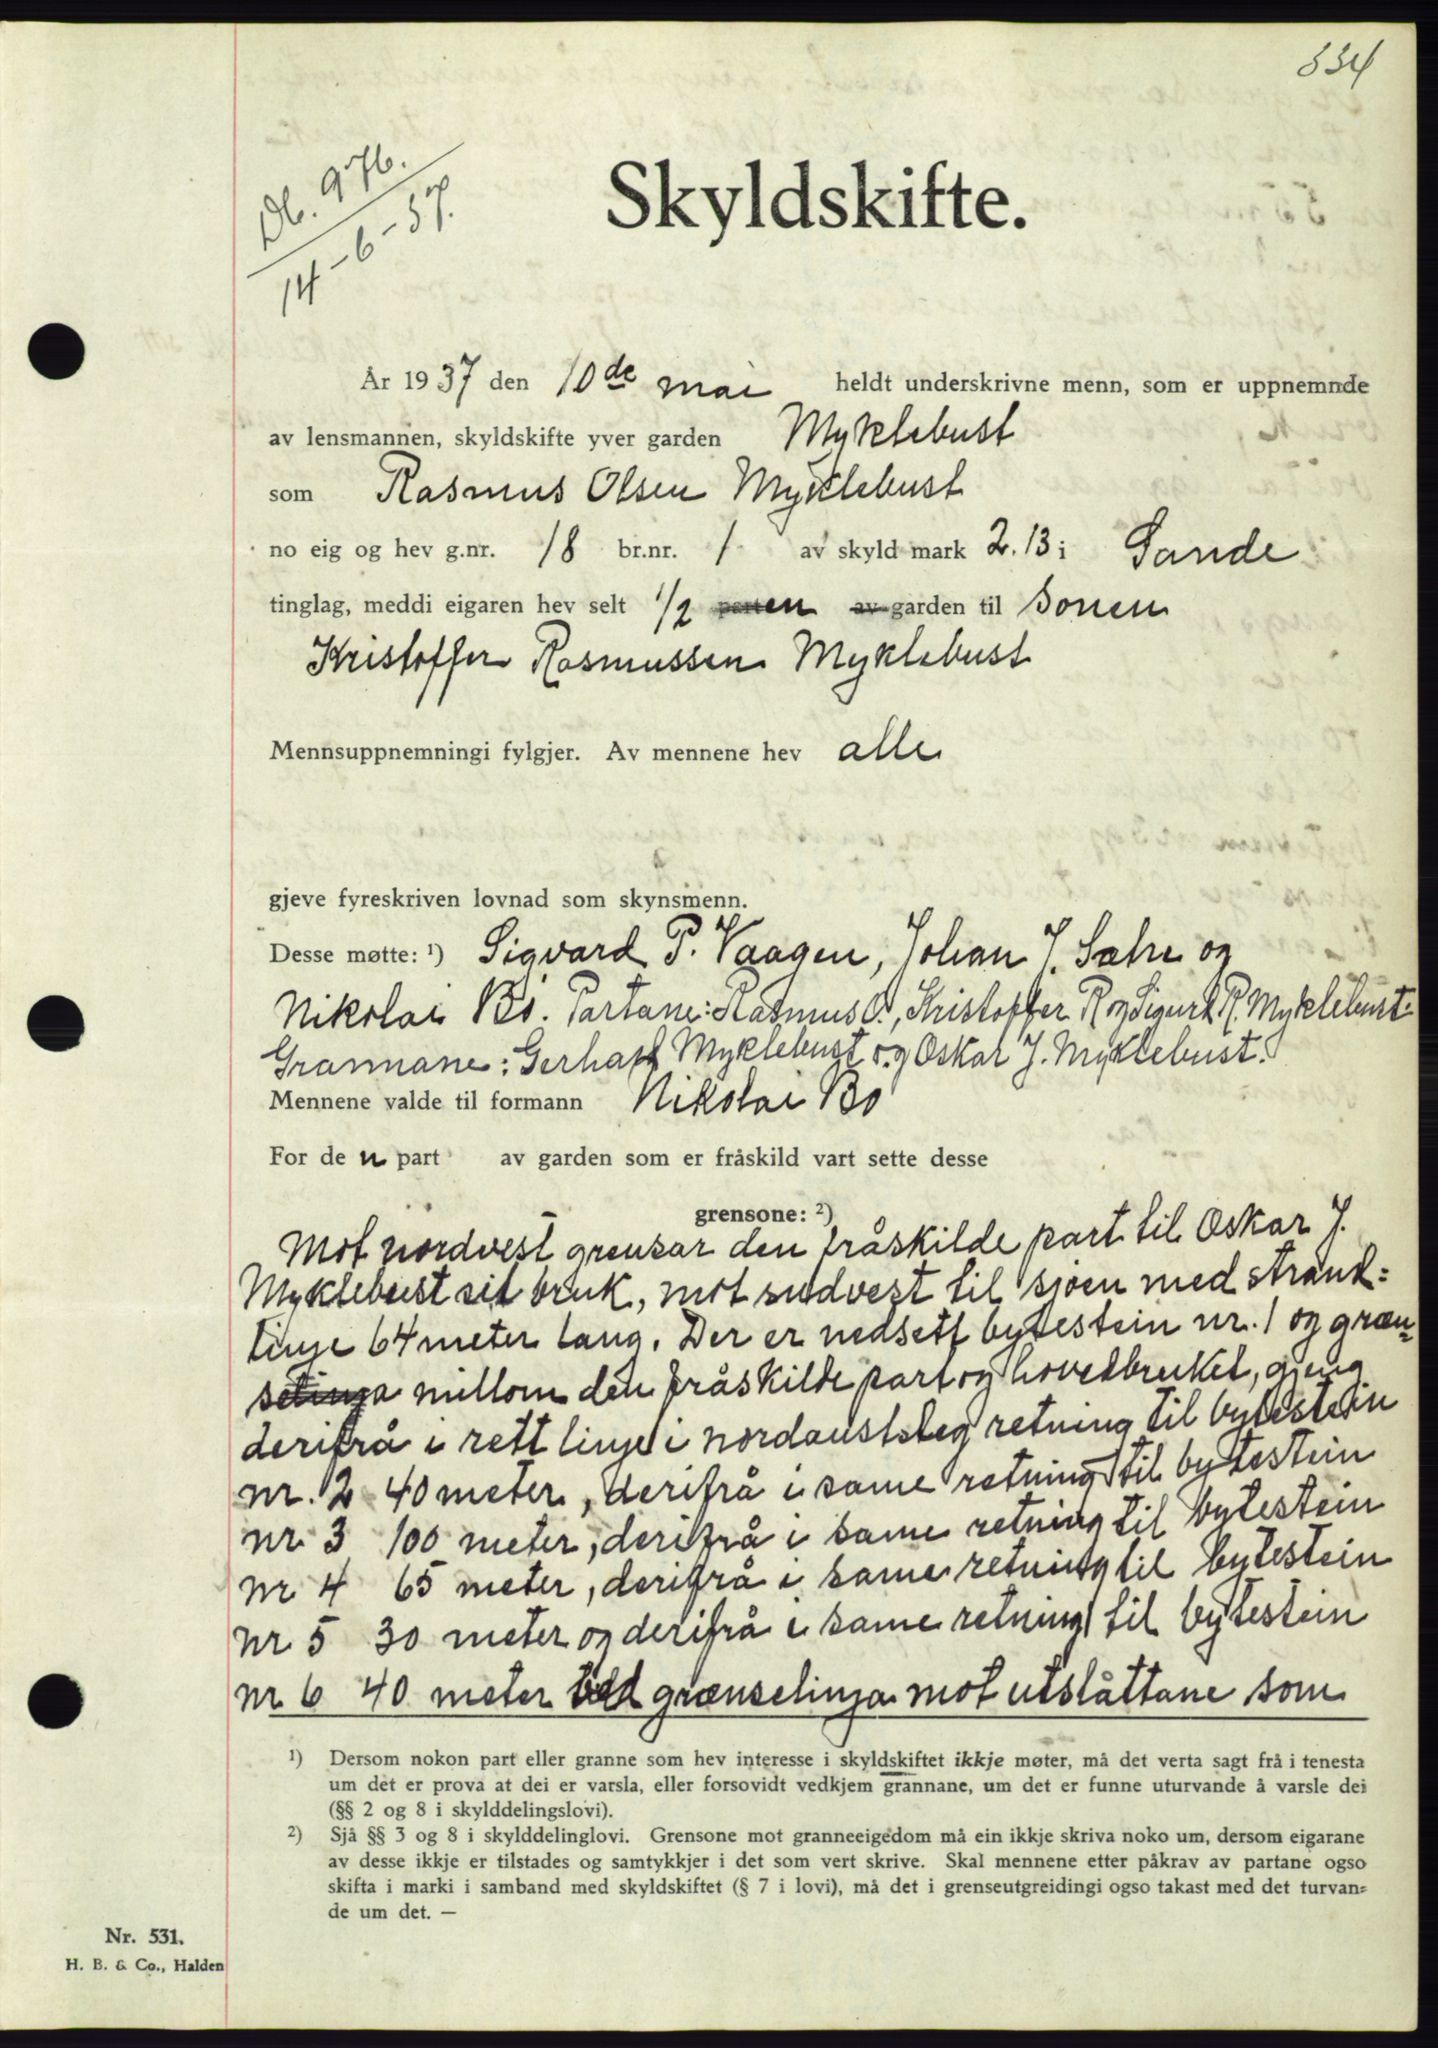 334
Db. 976.
14-6-37.
Skyldskifte.
År 1937 den 10de mai heldt underskrivne menn, som er uppnemnde
av lensmannen, skyldskifte yver garden Myklebust
som Rasmus Olsen Myklebust
no eig og hev g.nr. 18 br.nr. 1 av skyld mark 2.13 i Sande
tinglag, meddi eigaren hev selt 1/2 parten av garden til sonen
Kristoffer Rasmussen Myklebust
Mennsuppnemningi fylgjer. Av mennene hev alle
gjeve fyreskriven lovnad som skynsmenn.
Desse møtte: ¹) Sigvard P. Vaagen, Johan J. Sætre og
Nikolai Bø. Partane: Rasmus O., Kristoffer R og Sigurd R. Myklebust
Grannane: Gerhard Myklebust og Oskar J. Myklebust.
Mennene valde til formann Nikolai Bø
For den part av garden som er fråskild vart sette desse
grensone: ²)
Mot nordvest grensar den fråskilde part til Oskar J.
Myklebust sit bruk, mot sudvest til sjøen med strand-
linje 64 meter lang. Der er nedsett bytestein nr. 1 og græn-
selinja millom den fråskilde part og hovedbruket, gjeng
derifrå i rett linje i nordaustleg retning til bytestein
nr. 2 40 meter, derifrå i same retning til bytestein
nr 3 100 meter, derifrå i same retning til bytestein
nr 4 65 meter, derifrå i same retning til bytestein
nr 5 30 meter og derifrå i same retning til bytestein
nr 6 40 meter ved grænselinja mot utslåttane som
¹) Dersom nokon part eller granne som hev interesse i skyldskiftet ikkje møter, må det verta sagt frå i tenesta
um det er prova at dei er varsla, eller forsovidt vedkjem grannane, um det er funne uturvande å varsle dei
(§§ 2 og 8 i skylddelingslovi).
²) Sjå §§ 3 og 8 i skylddelinglovi. Grensone mot granneeigedom må ein ikkje skriva noko um, dersom eigarane
av desse ikkje er tilstades og samtykkjer i det som vert skrive. Skal mennene etter påkrav av partane ogso
skifta i marki i samband med skyldskiftet (§ 7 i lovi), må det i grenseutgreidingi ogso takast med det turvan-
de um det. —
Nr. 531.
H. B. & Co., Halden